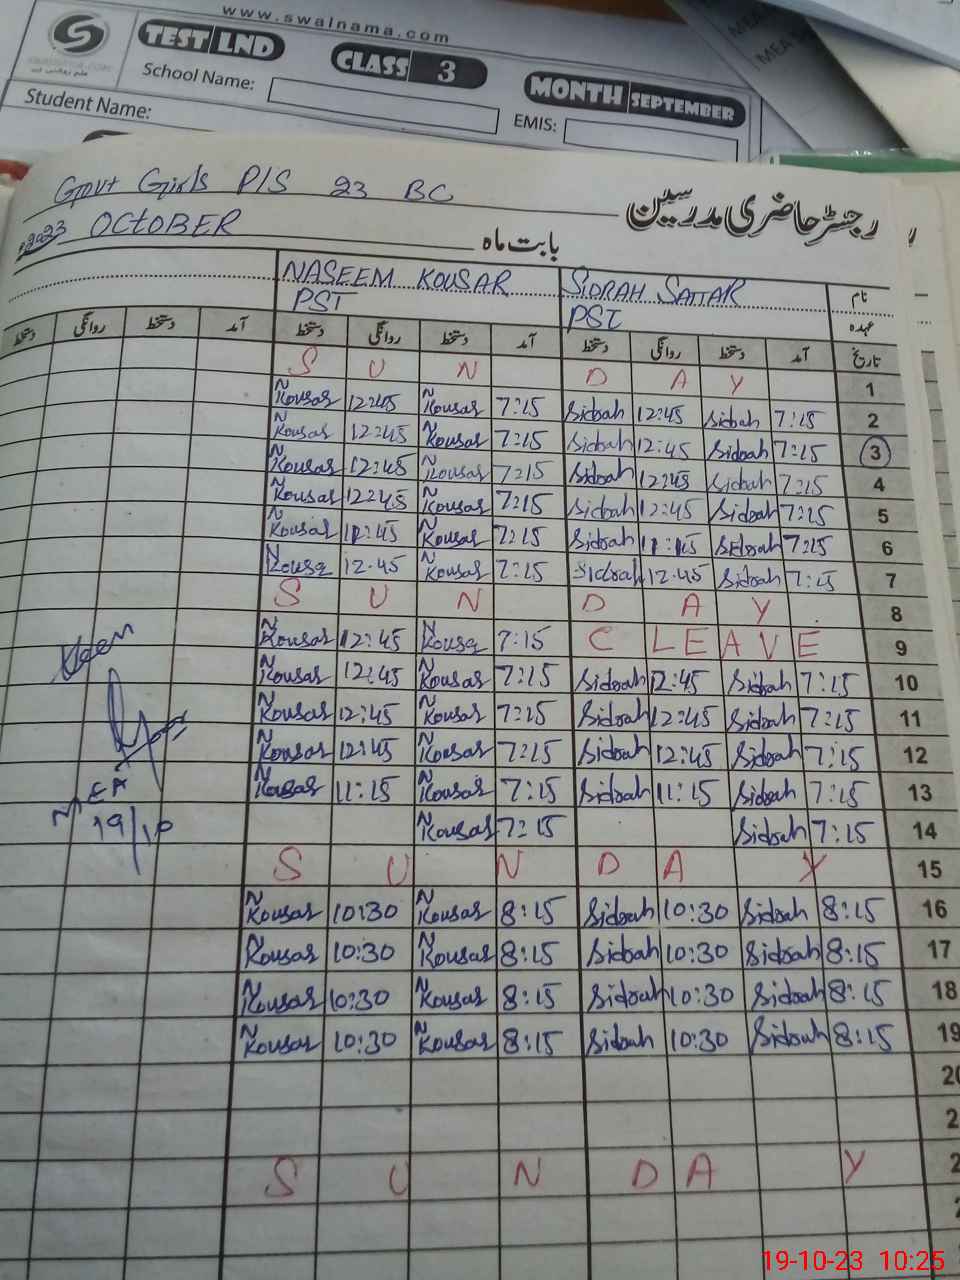 www.swalnama.com
TEST LND CLASS 3 MONTH SEPTEMBER
School Name: EMIS:
Student Name:
Govt Girls P/S 23 BC رجسٹر حاضری مدرسین
2023 OCTOBER بابت ماہ
NASEEM KOUSAR SIDRAH SATTAR نام
PST PST عہدہ
دستخط روانگی دستخط آمد دستخط روانگی دستخط آمد دستخط روانگی دستخط آمد تاریخ
S U N D A Y 1
N Kousar 12:45 N Kousar 7:15 Sidrah 12:45 Sidrah 7:15 2
N Kousar 12:45 Kousar 7:15 Sidrah 12:45 Sidrah 7:15 3
N Kousar 12:45 N Kousar 7:15 Sidrah 12:45 Sidrah 7:15 4
N Kousar 12:45 N Kousar 7:15 Sidrah 12:45 Sidrah 7:15 5
N Kousar 11:45 N Kousar 7:15 Sidrah 11:45 Sidrah 7:15 6
N Kousa 12.45 N Kousar 7:15 Sidrah 12.45 Sidrah 7:15 7
S U N D A Y 8
N Kousar 12:45 N Kousa 7:15 C LEAVE 9
N Kousar 12:45 N Kousar 7:15 Sidrah 12:45 Sidrah 7:15 10
N Kousar 12:45 N Kousar 7:15 Sidrah 12:45 Sidrah 7:15 11
N Kousar 12:45 N Kousar 7:15 Sidrah 12:45 Sidrah 7:15 12
N Kousar 11:15 N Kousar 7:15 Sidrah 11:15 Sidrah 7:15 13
N Kousar 7:15 Sidrah 7:15 14
MEA
19/10
S U N D A Y 15
N Kousar 10:30 N Kousar 8:15 Sidrah 10:30 Sidrah 8:15 16
N Kousar 10:30 N Kousar 8:15 Sidrah 10:30 Sidrah 8:15 17
N Kousar 10:30 N Kousar 8:15 Sidrah 10:30 Sidrah 8:15 18
N Kousar 10:30 N Kousar 8:15 Sidrah 10:30 Sidrah 8:15 19
20
2
S U N D A Y 2
19-10-23 10:25